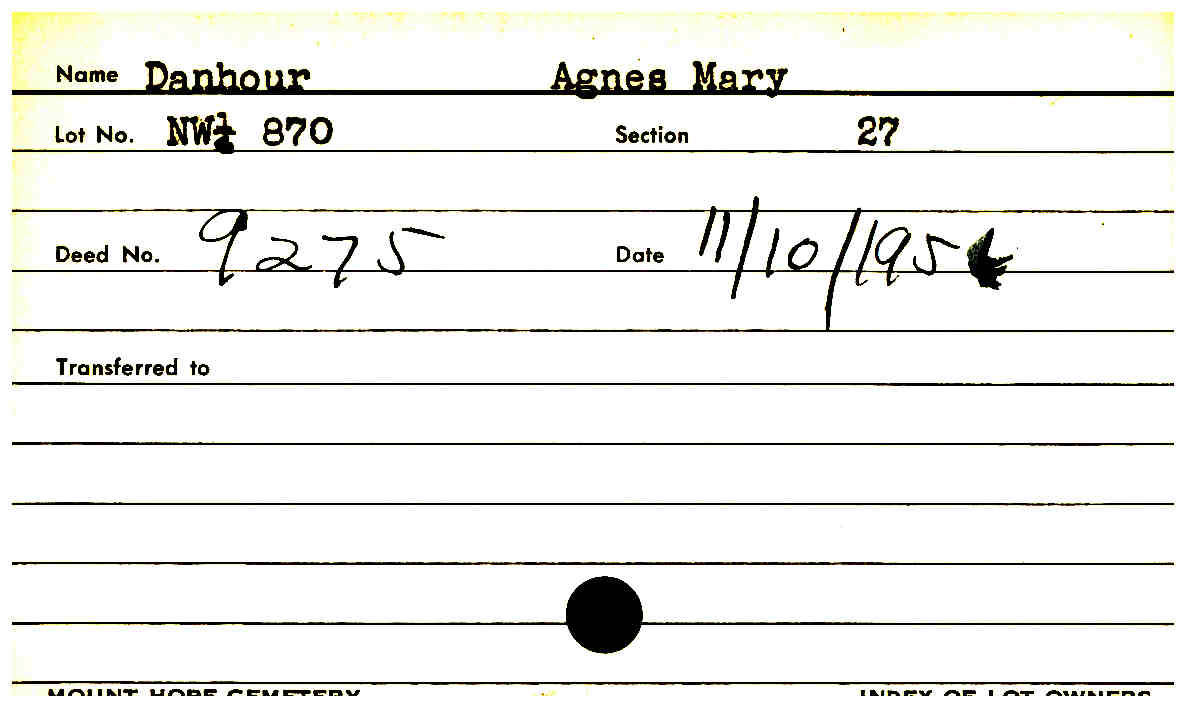 Name Danhour Agnes Mary
Lot No. NW¼ 870 Section 27
Deed No. 9275 Date 11/10/195
Transferred to
MOUNT HOPE CEMETERY INDEX OF LOT OWNERS